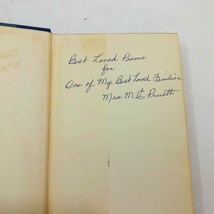 Best Loved Poems
for
One of My Best Loved Families
Mrs. M C Pruett